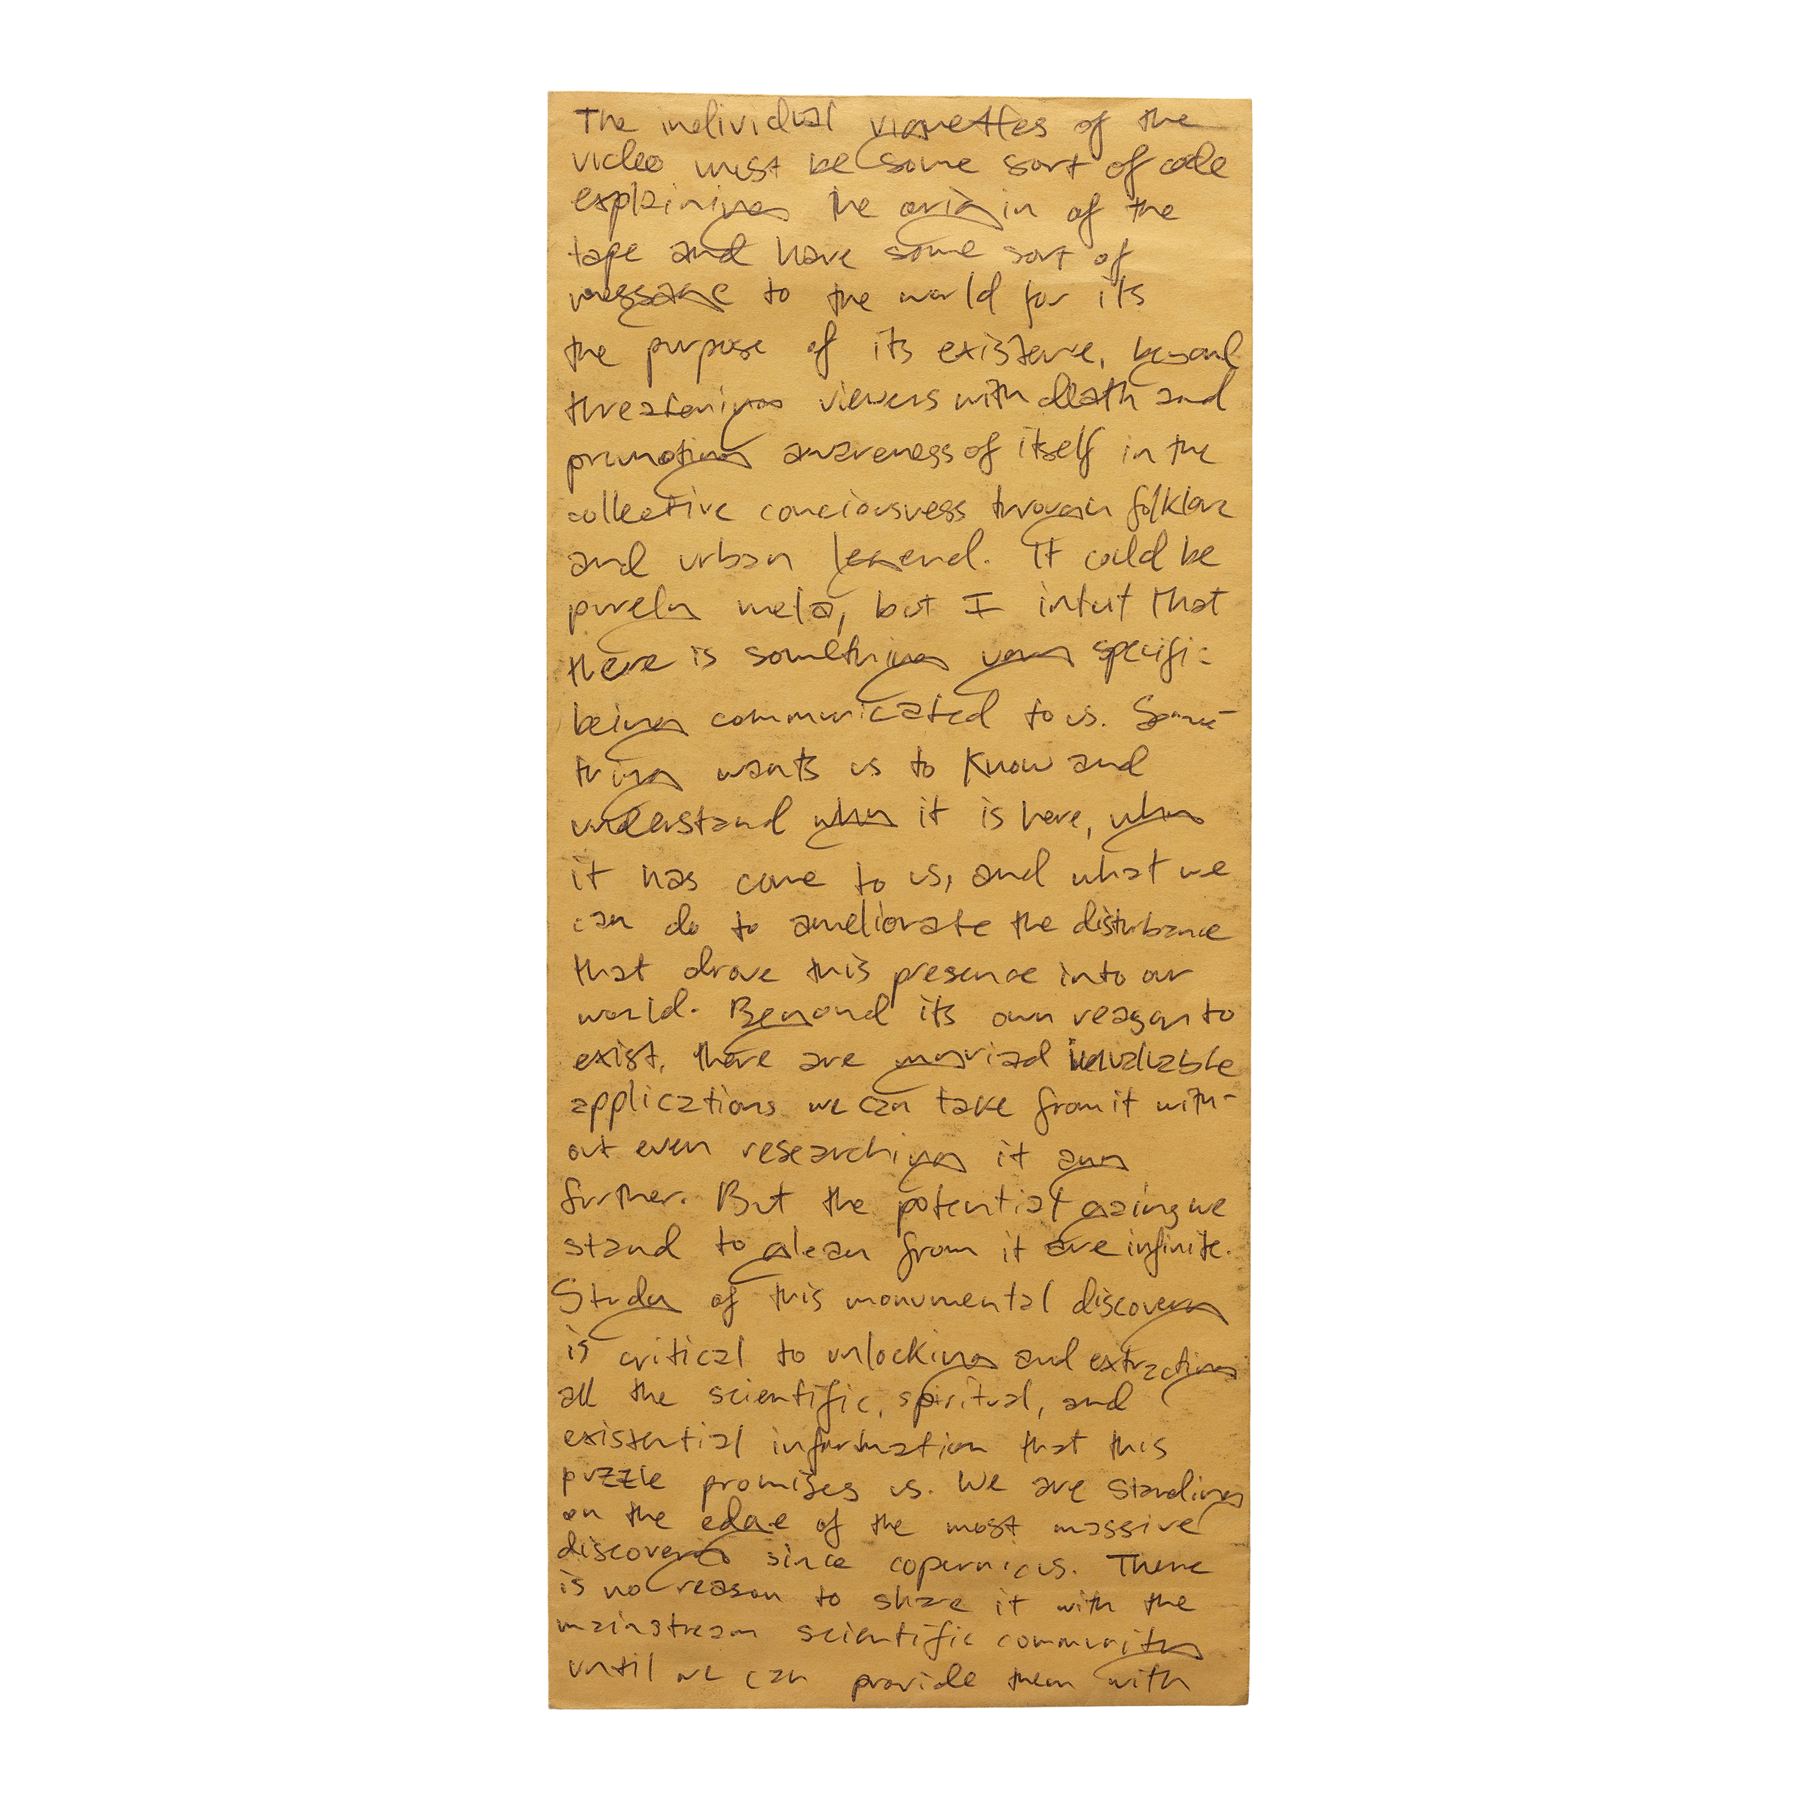 The individual vignettes of the
video must be some sort of code
explaining the origin of the
tape and have some sort of
message to the world for its
the purpose of its existence, beyond
threatening viewers with death and
promoting awareness of itself in the
collective conciousness through folklore
and urban legend. It could be
purely meta, but I intuit that
there is something very specific
being communicated to us. Some-
thing wants us to know and
understand why it is here, why
it has come to us, and what we
can do to ameliorate the disturbance
that drove this presence into our
world. Beyond its own reason to
exist, there are myriad invaluable
applications we can take from it with-
out even researching it any
further. But the potential gains we
stand to glean from it are infinite.
Study of this monumental discovery
is critical to unlocking and extracting
all the scientific, spiritual, and
existential information that this
puzzle promises us. We are standing
on the edge of the most massive
discovery since copernicus. There
is no reason to share it with the
mainstream scientific community
until we can provide them with